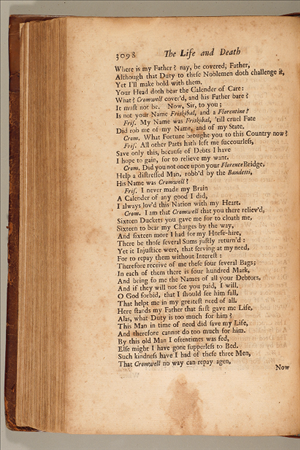 3098 The Life and Death
Where is my Father? nay, be covered, Father,
Although that Duty to these Noblemen doth challenge it,
Yet I'll make bold with them.
Your Head doth bear the Calender of Care:
What? Cromwell cover'd, and his Father bare?
It must not be. Now, Sir, to you;
Is not your Name Friskybal, and a Florentine?
Fris. My Name was Friskybal, 'till cruel Fate
Did rob me of my Name, and of my State.
Crom. What Fortune brought you to this Country now?
Fris. All other Parts hath left me succourless,
Save only this, because of Debts I have
I hope to gain, for to relieve my want.
Crom. Did you not once upon your Florence Bridge,
Help a distressed Man, robb'd by the Bandetti,
His Name was Cromwell?
Fris. I never made my Brain
A Calender of any good I did,
I always lov'd this Nation with my Heart.
Crom. I am that Cromwell that you there reliev'd,
Sixteen Duckets you gave me for to cloath me,
Sixteen to bear my Charges by the way,
And sixteen more I had for my Horse-hire,
There be those several Sums justly return'd:
Yet it Injustice were, that serving at my need,
For to repay them without Interest:
Therefore receive of me these four several Bags;
In each of them there is four hundred Mark,
And bring to me the Names of all your Debtors,
And if they will not see you paid, I will.
O God forbid, that I should see him fall,
That helpt me in my greatest need of all.
Here stands my Father that first gave me Life,
Alas, what Duty is too much for him?
This Man in time of need did save my Life,
And therefore cannot do too much for him.
By this old Man I oftentimes was fed,
Else might I have gone supperless to Bed.
Such kindness have I had of these three Men,
That Cromwell no way can repay agen.
Now